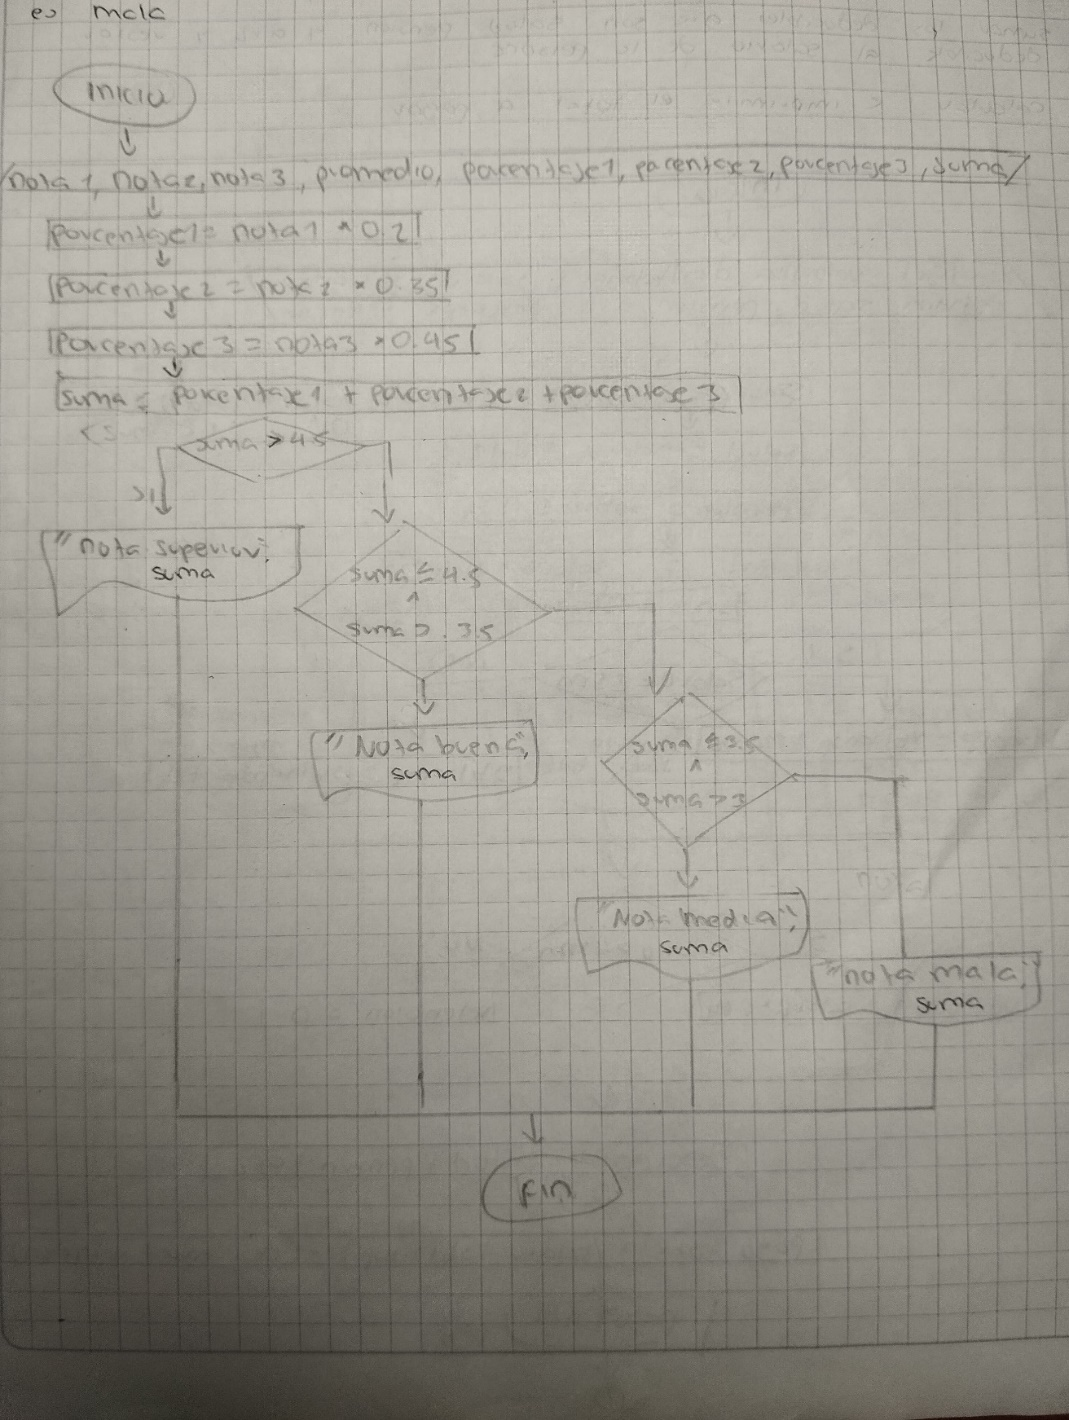 es mala
inicio
nota 1, nota 2, nota 3, promedio, porcentaje 1, porcentaje 2, porcentaje 3, suma
porcentaje 1 = nota 1 * 0.2
porcentaje 2 = nota 2 * 0.35
porcentaje 3 = nota 3 * 0.45
suma = porcentaje 1 + porcentaje 2 + porcentaje 3
suma > 4.5
si
"nota superior",
suma
suma ≤ 4.5
^
suma > 3.5
"Nota buena",
suma
suma ≤ 3.5
^
suma > 3
"Nota media",
suma
"nota mala",
suma
Fin